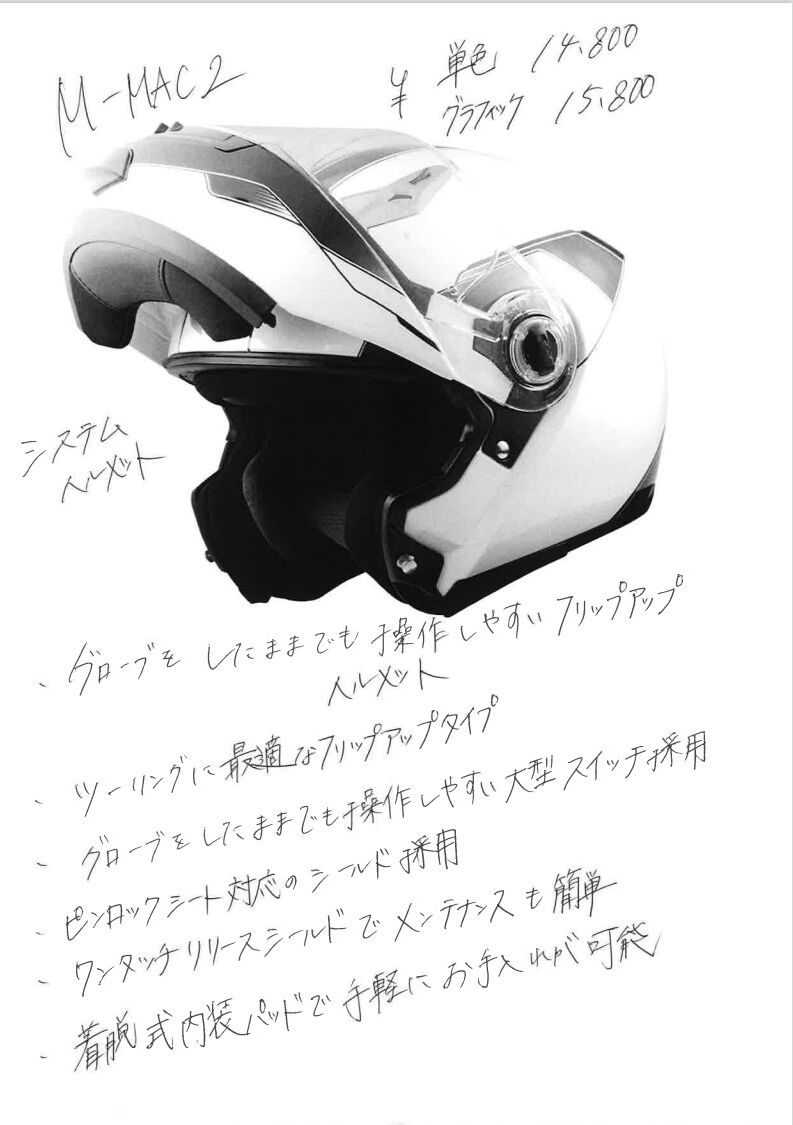 M-MAC2
¥ 単色 14.800
グラフィック 15.800
システム
ヘルメット
、グローブを したままでも 操作しやすい フリップアップ
ヘルメット
、ツーリングに最適なフリップアップタイプ
、グローブをしたままでも操作しやすい大型スイッチ採用
、ピンロックシート対応のシールド採用
、ワンタッチリリースシールドでメンテナンスも簡単
、着脱式内装パッドで手軽にお手入れが可能